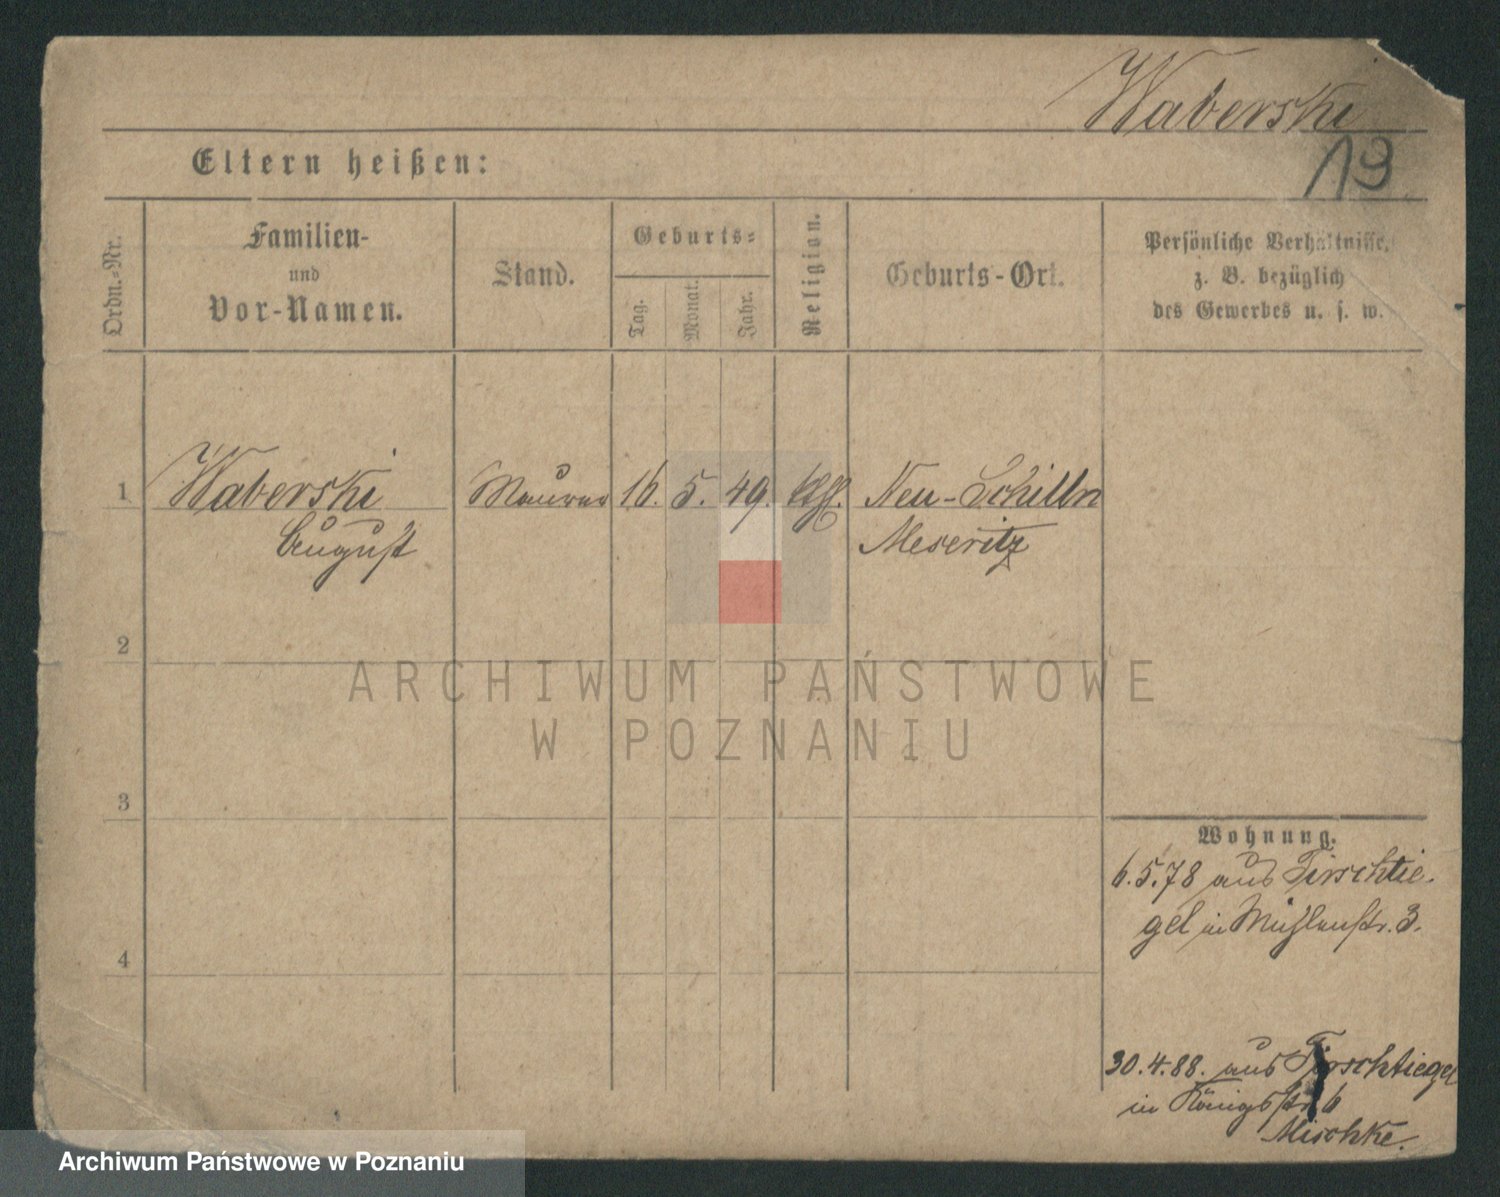 Waberski
19
Eltern heißen:
Ordn.-Nr.
Familien-
und
Vor-Namen.
Stand.
Geburts-
Tag.
Monat.
Jahr.
Religion.
Geburts-Ort.
Persönliche Verhältnisse,
z. B. bezüglich
des Gewerbes u. s. w.
1
Waberski
August
Maurer
16.
5.
49.
kthl.
Neu-Schilln
Meseritz
2
3
4
Wohnung.
6.5.78 aus Tirschtie-
gel in Mühlenstr. 3.
30.4.88. aus Tirschtiegel
in Königsstr. 6
Mischke.
ARCHIWUM PAŃSTWOWE
W POZNANIU
Archiwum Państwowe w Poznaniu